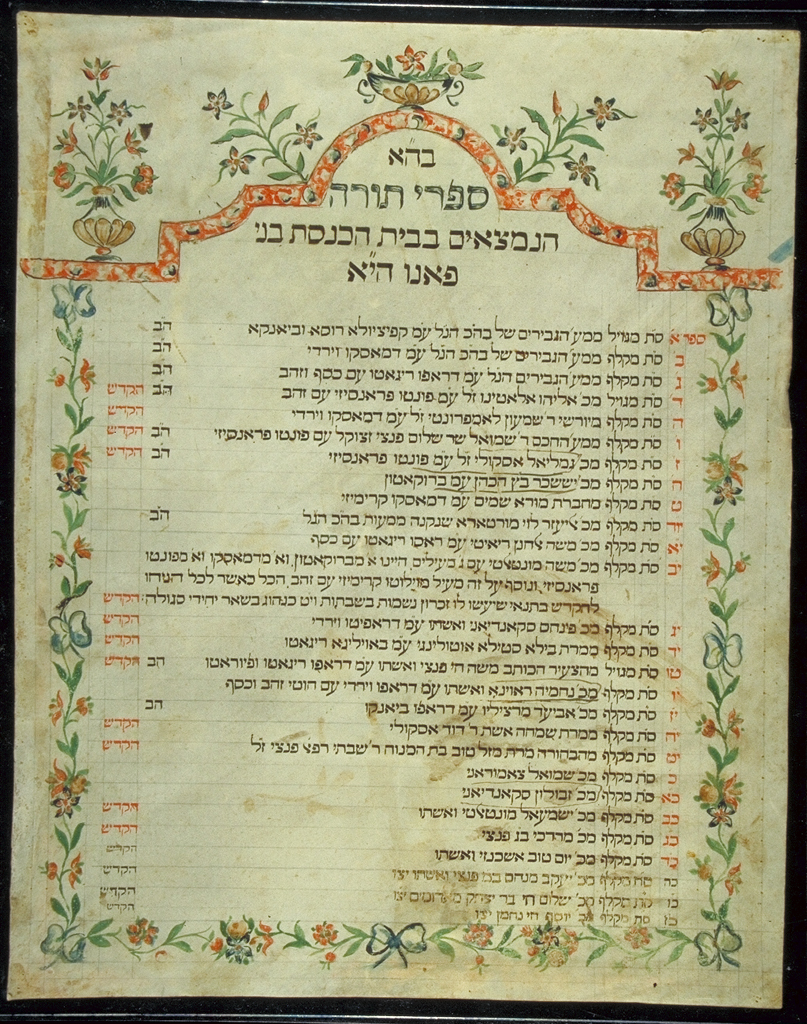 בה״א
ספרי תורה
הנמצאים בבית הכנסת בני
פאנו הי״א
ספר א סת מגויל ממע הגבירים של בהכ הנל עמ קפיציולא רוסא וביאנקא הב
ב סת מקלף ממע הגבירים של בהכ הנל עמ דמאסקו וירדי הב
ג סת מקלף ממע הגבירים הנל עמ דראפו רינאטו עם כסף וזהב הב
ד סת מגויל מכ׳ אליהו אלאטינו זל עמ פונטו פראנסיזי עם זהב הב הקדש
ה סת מקלף מיורשי ר׳ שמעון לאמפרונטי זל עמ דמאסקו וירדי הקדש
ו סת מקלף ממע החכם ר׳ שמואל שר שלום פנצי זצוקל עם פונטו פראנסיזי הב הקדש
ז סת מקלף מכ׳ גמליאל אסקולי זל עמ פונטו פראנסיזי הב הקדש
ח סת מקלף מכ׳ יששכר בץ הכהן עמ ברוקאטון
ט סת מקלף מחברת מורא שמים עמ דמאסקו קרימיזי
יוד סת מקלף מכ׳ לזי מורטארא שנקנה ממעות בהכ הנל הב
יא סת מקלף מכ׳ משה ריאיטי עמ ראסו רינאטו עם כסף
יב סת מקלף מכ׳ משה מונטיטי עם ג מעילים היינו א מברוקאטון וא׳ מדמאסקו וא מפונטו
פראנסיזי ונוסף על זה מעיל מוילוטו קרימיזי עם זהב הכל כאשר לכל
להקדש בתנאי שיעשו לו זכרון נשמות בשבתות ויט כנהוג בשאר יחידי סגולה: הקדש
יג סת מקלף מכ׳ פינחס סקאנדיאני ואשתו עמ דראפיטו וירדי הקדש
יד סת מקלף ממרת בילא סטילא אוטולינגי עמ באוילינא רינאטו הקדש
טו סת מגויל מהצעיר הכותב משה חי פנצי ואשתו עמ דראפו רינאטו ופיוראטו הב הקדש
יו סת מקלף מכ׳ נחמיה ראוינא ואשתו עמ דראפו וירדי עם חוטי זהב וכסף
יז סת מקלף מכ׳ אביעד מרציליו עמ דראפו ביאנקו הב
יח סת מקלף ממרת שמחה אשת ר׳ דוד אסקולי הקדש
יט סת מקלף מהבחורה מרת מזל טוב בת המנוח ר׳ שבתי רפא׳ פנצי זל הקדש
כ סת מקלף מכ׳ שמואל צאמוראני
כא סת מקלף מכ׳ זבולון סקאנדיאני
כב סת מקלף מכ׳ ישמעאל מונטיטי ואשתו הקדש
כג סת מקלף מכ׳ מרדכי בנ׳ פנצי הקדש
כד סת מקלף מכ׳ יום טוב אשכנזי ואשתו הקדש
כה סת מקלף מכ׳ יעקב מנחם פנצי ואשתו יצו הקדש
כו סת מקלף מכ׳ שלום חי בר יצחק יצו הקדש
כז סת מקלף יוסף חי נחמן יצו הקדש